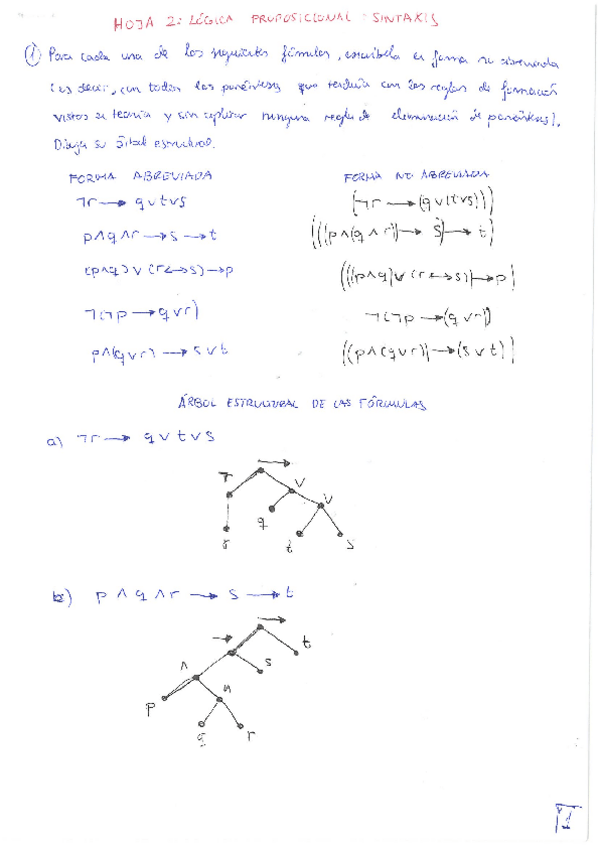 HOJA 2: LÓGICA PROPOSICIONAL: SINTAXIS
① Para cada una de las siguientes fórmulas, escríbela en forma no abreviada
(es decir, con todos los paréntesis que tendría con las reglas de formación
vistas en teoría y sin aplicar ninguna regla de eliminación de paréntesis).
Dibuja su árbol estructural.
FORMA ABREVIADA FORMA NO ABREVIADA
¬r → q∨t∨s (¬r → (q∨(t∨s)))
p∧q∧r → s → t (((p∧(q∧r)) → s) → t)
(p∧q)∨(r↔s) → p (((p∧q)∨(r↔s)) → p)
¬(¬p → q∨r) ¬(¬p → (q∨r))
p∧(q∨r) → s∨t ((p∧(q∨r)) → (s∨t))
ÁRBOL ESTRUCTURAL DE LAS FÓRMULAS
a) ¬r → q∨t∨s
→
¬ ∨
∨
r q t s
b) p∧q∧r → s → t
→
→ t
∧ s
p ∧
q r
1